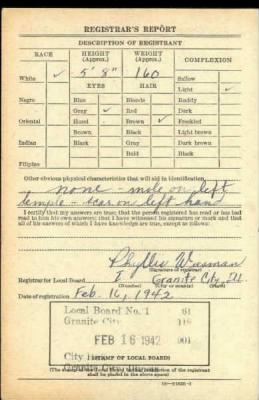 REGISTRAR'S REPORT
DESCRIPTION OF REGISTRANT
RACE HEIGHT (Approx.) WEIGHT (Approx.) COMPLEXION
White ✓ 5' 8" 160 Sallow
EYES HAIR Light ✓
Negro Blue Blonde Ruddy
Gray ✓ Red Dark
Oriental Hazel Brown ✓ Freckled
Brown Black Light brown
Indian Black Gray Dark brown
Bald Black
Filipino
Other obvious physical characteristics that will aid in identification
none - mole on left
temple - scar on left hand
I certify that my answers are true; that the person registered has read or has had
read to him his own answers; that I have witnessed his signature or mark and that
all of his answers of which I have knowledge are true, except as follows:
Phyllis
(Signature of registrar)
Registrar for Local Board 1 Granite City, Ill.
(Number) (City or county) (State)
Date of registration Feb. 16, 1942
Local Board No. 1 61
Granite City 119
FEB 16 1942 001
City
(STAMP OF LOCAL BOARD)
Granite City, Illinois
(The stamp of the Local Board having jurisdiction of the registrant
shall be placed in the above space)